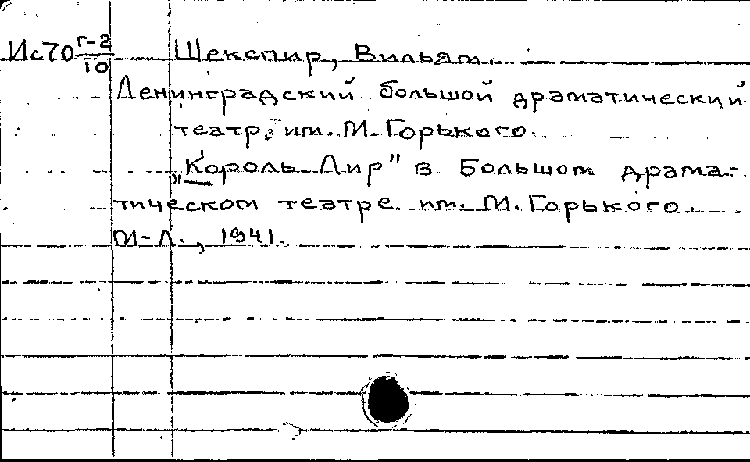 Ис70 г-2/10 Шекспир, Вильям.
Ленинградский большой драматический
театр им. М. Горького.
„Король Лир" в Большом драма-
тическом театре им. М. Горького.
М-Л., 1941.